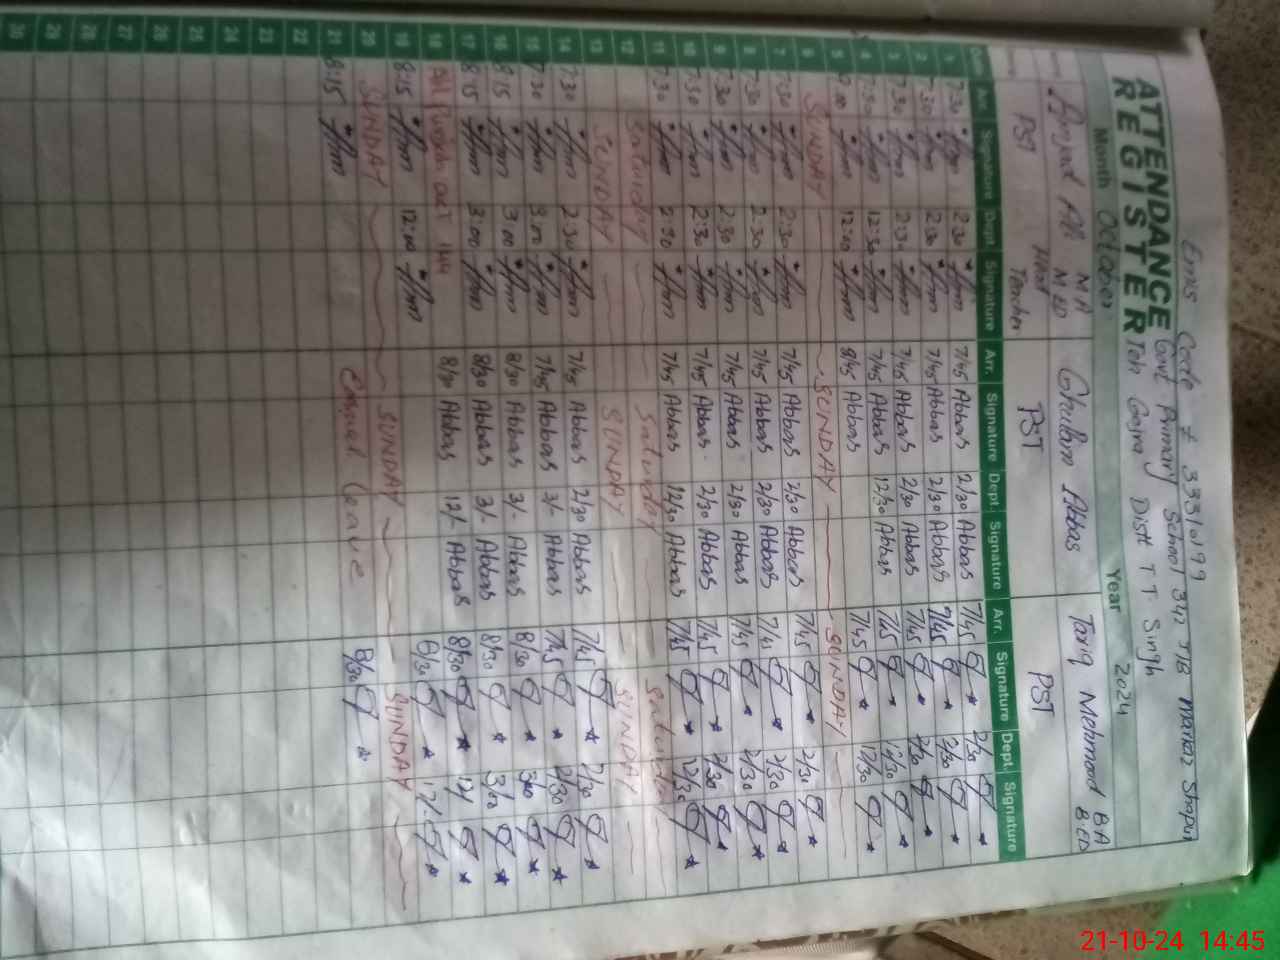 Emis Code # 33310199
ATTENDANCE Govt Primary School 342 JB markaz
REGISTER Teh Gojra Distt T T Singh
Month October Year 2024
Amjad Ali MA MED Ghulam Abbas Tariq Mehmood BA BED
PST Head Teacher PST PST
Arr. Signature Dept. Signature Arr. Signature Dept. Signature Arr. Signature Dept. Signature
1 7:30 2:30 7/45 Abbas 2/30 Abbas 7/45 2/30
2 7:30 2:30 7/45 Abbas 2/30 Abbas 7/45 2/30
3 7:30 2:30 7/45 Abbas 2/30 Abbas 7/45 2/30
4 7:30 12:30 7/45 Abbas 12/30 Abbas 7/45 12/30
5 12:00 8/45 Abbas 7/45 12/30
6 SUNDAY SUNDAY SUNDAY
7 7:30 2:30 7/45 Abbas 2/30 Abbas 7/45 2/30
8 7:30 2:30 7/45 Abbas 2/30 Abbas 7/45 2/30
9 7:30 2:30 7/45 Abbas 2/30 Abbas 7/45 2/30
10 7:30 2:30 7/45 Abbas 2/30 Abbas 7/45 2/30
11 7:30 2:30 7/45 Abbas 12/30 Abbas 7/45 12/30
12 Saturday Saturday Saturday
13 SUNDAY SUNDAY SUNDAY
14 7:30 2:30 7/45 Abbas 2/30 Abbas 7/45 2/30
15 7:30 3:00 7/45 Abbas 3/- Abbas 7/45 2/30
16 8:15 3:00 8/30 Abbas 3/- Abbas 8/30 3/00
17 8:15 3:00 8/30 Abbas 3/- Abbas 8/30 3/00
18 8/30 Abbas 12/- Abbas 8/30 12/
19 8:15 12:00 8/30 12/-
20 SUNDAY SUNDAY SUNDAY
21 8:15 Casual Leave 8/30
22
23
24
25
26
27
28
29
30
21-10-24 14:45